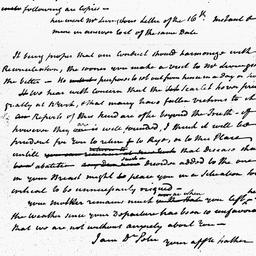 following are copies —
Letter of the 16th
more in answer to it of the same date.
It being proper that our conduct should harmonize with
Recommendation, the sooner you make a visit to Mr
the better — He purposes to set out from hence in a day or
We hear with concern that the Scarlet
greatly at and that many have fallen victims to
Reports of this kind are often beyond the Truth — if
however they are well founded, I think it will be
prudent for you to return to Rye, or to this Place
untill that disease
abate disorder added to the one
in your Breast might place you in a situation too
critical to be unnecessarily risqued —
your mother remains much as when you left
the weather since your Departure has been so unfavorable
that we are not without anxiety about you —
I am Dr Peter your affte father